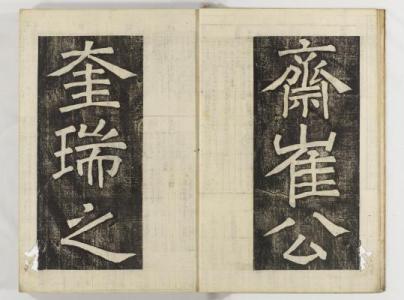 齋崔公
奎瑞之